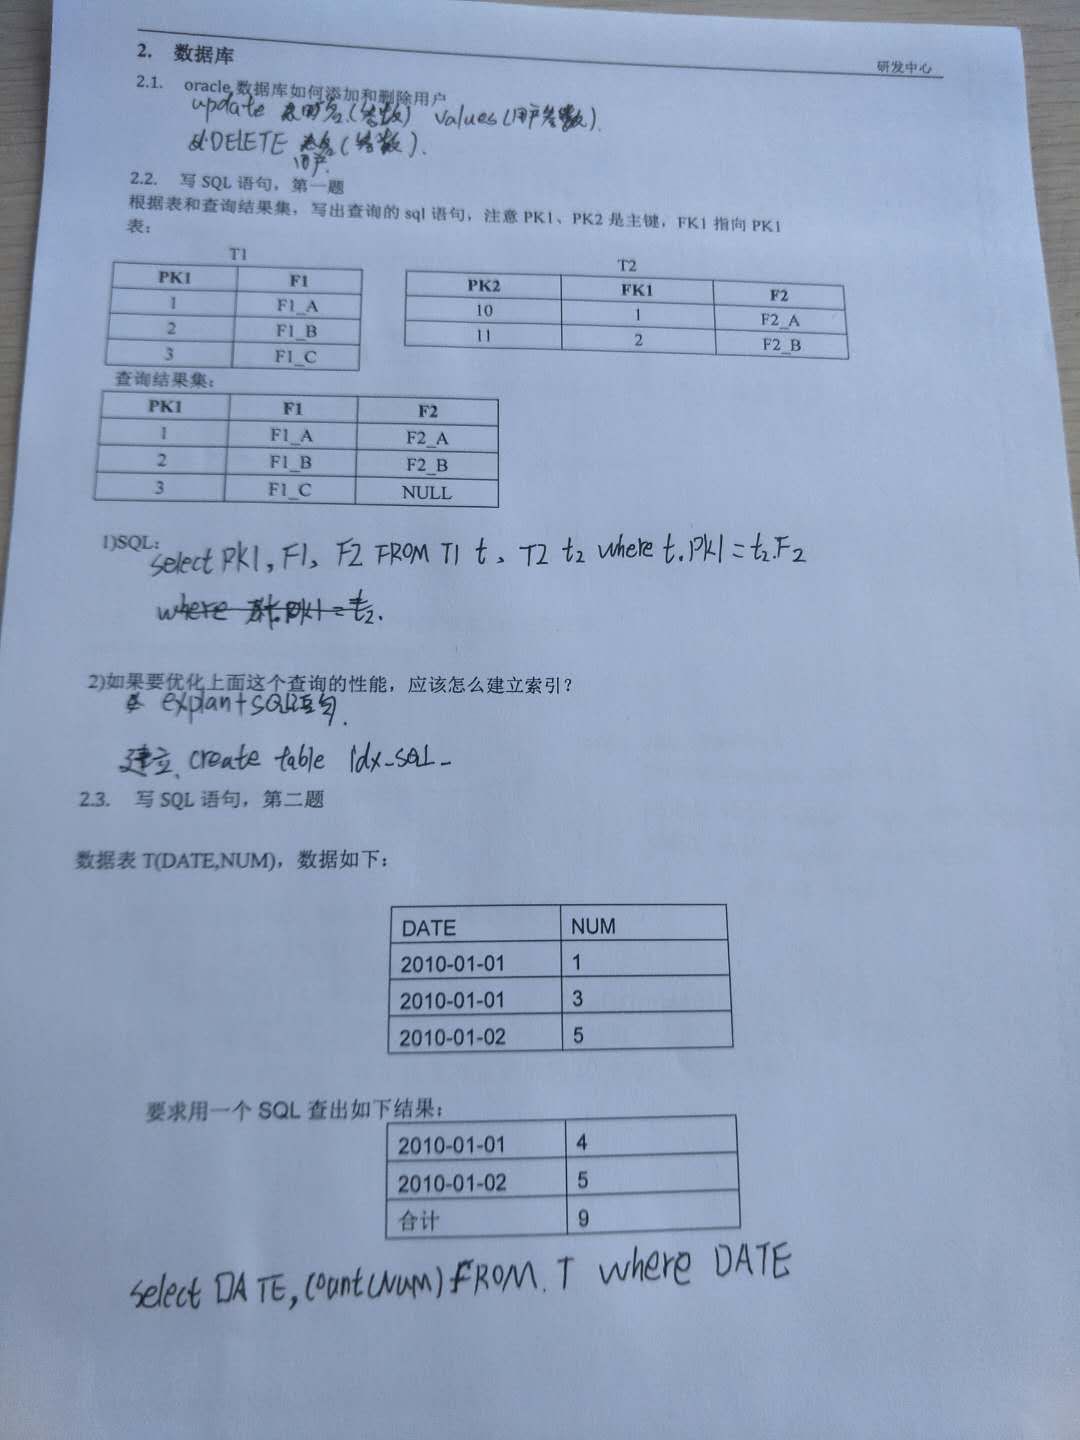 研发中心
2. 数据库
2.1. oracle 数据库如何添加和删除用户
update (参数) values(用户参数).
DELETE (参数).
用户.
2.2. 写 SQL 语句，第一题
根据表和查询结果集，写出查询的 sql 语句，注意 PK1、PK2 是主键，FK1 指向 PK1
表：
T1
PK1 F1
1 F1_A
2 F1_B
3 F1_C
T2
PK2 FK1 F2
10 1 F2_A
11 2 F2_B
查询结果集：
PK1 F1 F2
1 F1_A F2_A
2 F1_B F2_B
3 F1_C NULL
1)SQL：
select PK1, F1, F2 FROM T1 t、T2 t2 where t.PK1=t2.F2
where t.pk1=t2.
2)如果要优化上面这个查询的性能，应该怎么建立索引？
explan+SQL语句.
建立、create table Idx-SQL-
2.3. 写 SQL 语句，第二题
数据表 T(DATE,NUM)，数据如下：
DATE NUM
2010-01-01 1
2010-01-01 3
2010-01-02 5
要求用一个 SQL 查出如下结果：
2010-01-01 4
2010-01-02 5
合计 9
select DATE, count(Num) FROM. T where DATE